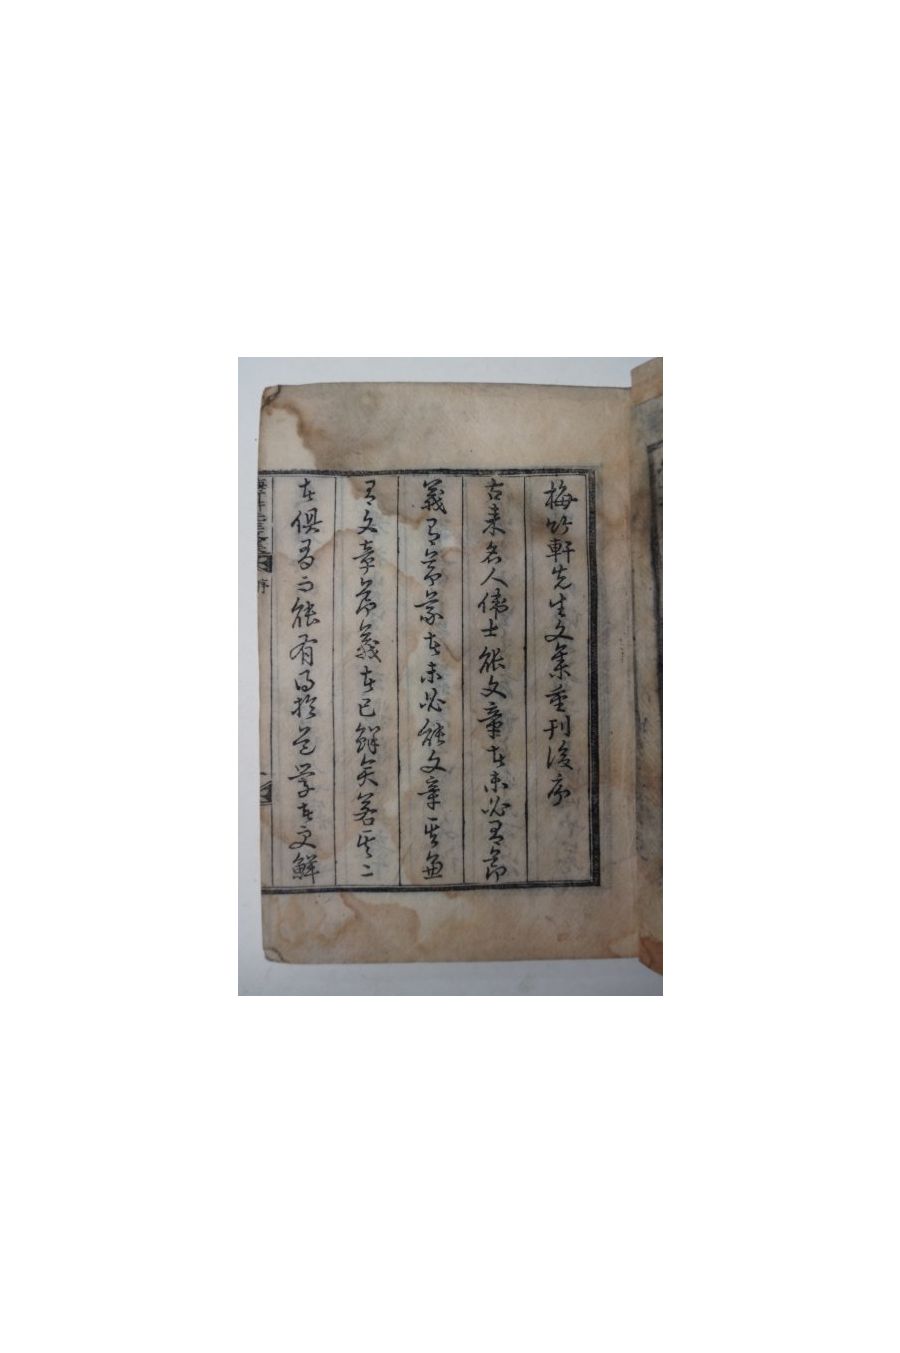 梅竹軒先生文集重刊後序
古來名人偉士能文章者未必有節
義有節義者未必能文章其兼
有文章節義者已鮮矣若其二
者俱有而能有得於道學者又鮮
序